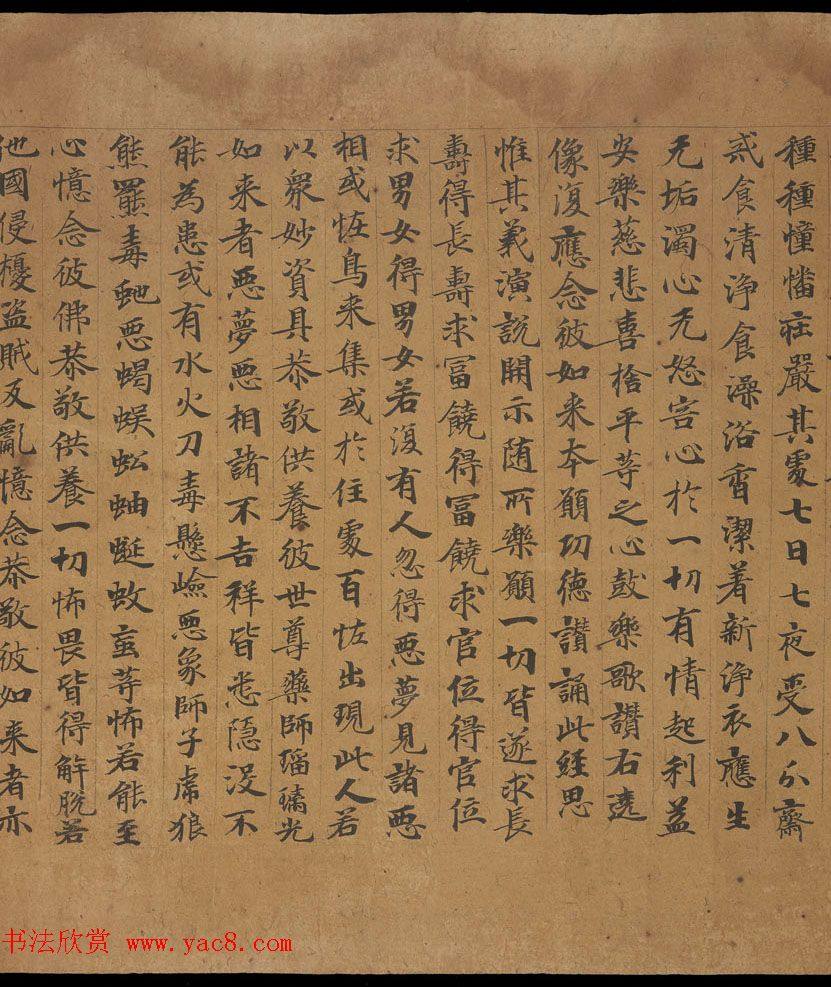 種種憧憣莊嚴其處七日七夜受八分齋
戒食清淨食澡浴香潔著新淨衣應生
无垢濁心无怒害心於一切有情起利益
安樂慈悲喜捨平等之心鼓樂歌讃右遶
像復應念彼如来本願功德讃誦此經思
惟其義演說開示随所樂願一切皆遂求長
壽得長壽求富饒得富饒求官位得官位
求男女得男女若復有人忽得惡夢見諸惡
相或恠鳥来集或於住處百恠出現此人若
以衆妙資具恭敬供養彼世尊藥師瑠璃光
如来者惡夢惡相諸不吉祥皆悉隱没不
能為患或有水火刀毒懸嶮惡象師子虎狼
熊羆毒虵惡蝎蜈蚣蚰蜒蚊䖟等怖若能至
心憶念彼佛恭敬供養一切怖畏皆得解脫若
他國侵擾盜賊反亂憶念恭敬彼如来者亦
书法欣赏 www.yac8.com